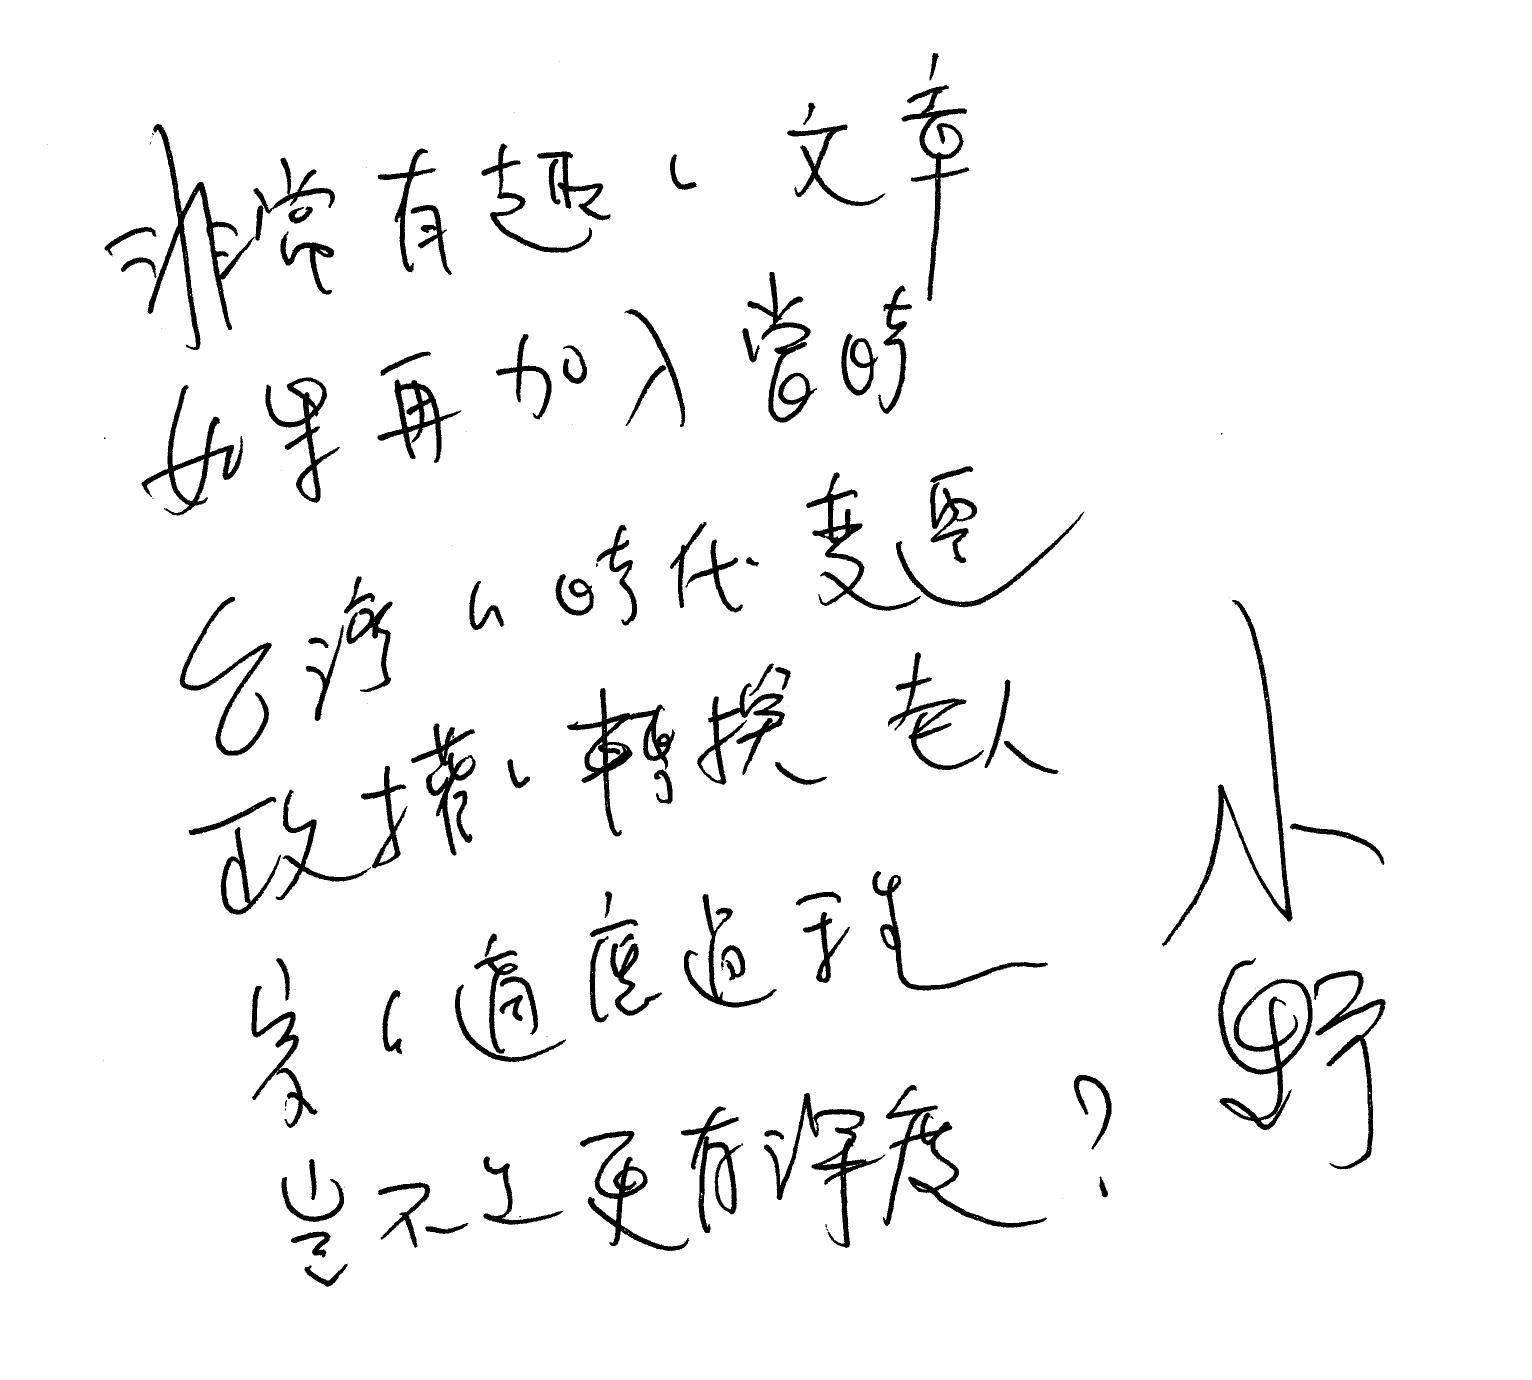 非常有趣的文章
如果再加入當時
台灣的時代變遷
政權的轉換 老人
家的適度過程
豈不是更有深度？
小野